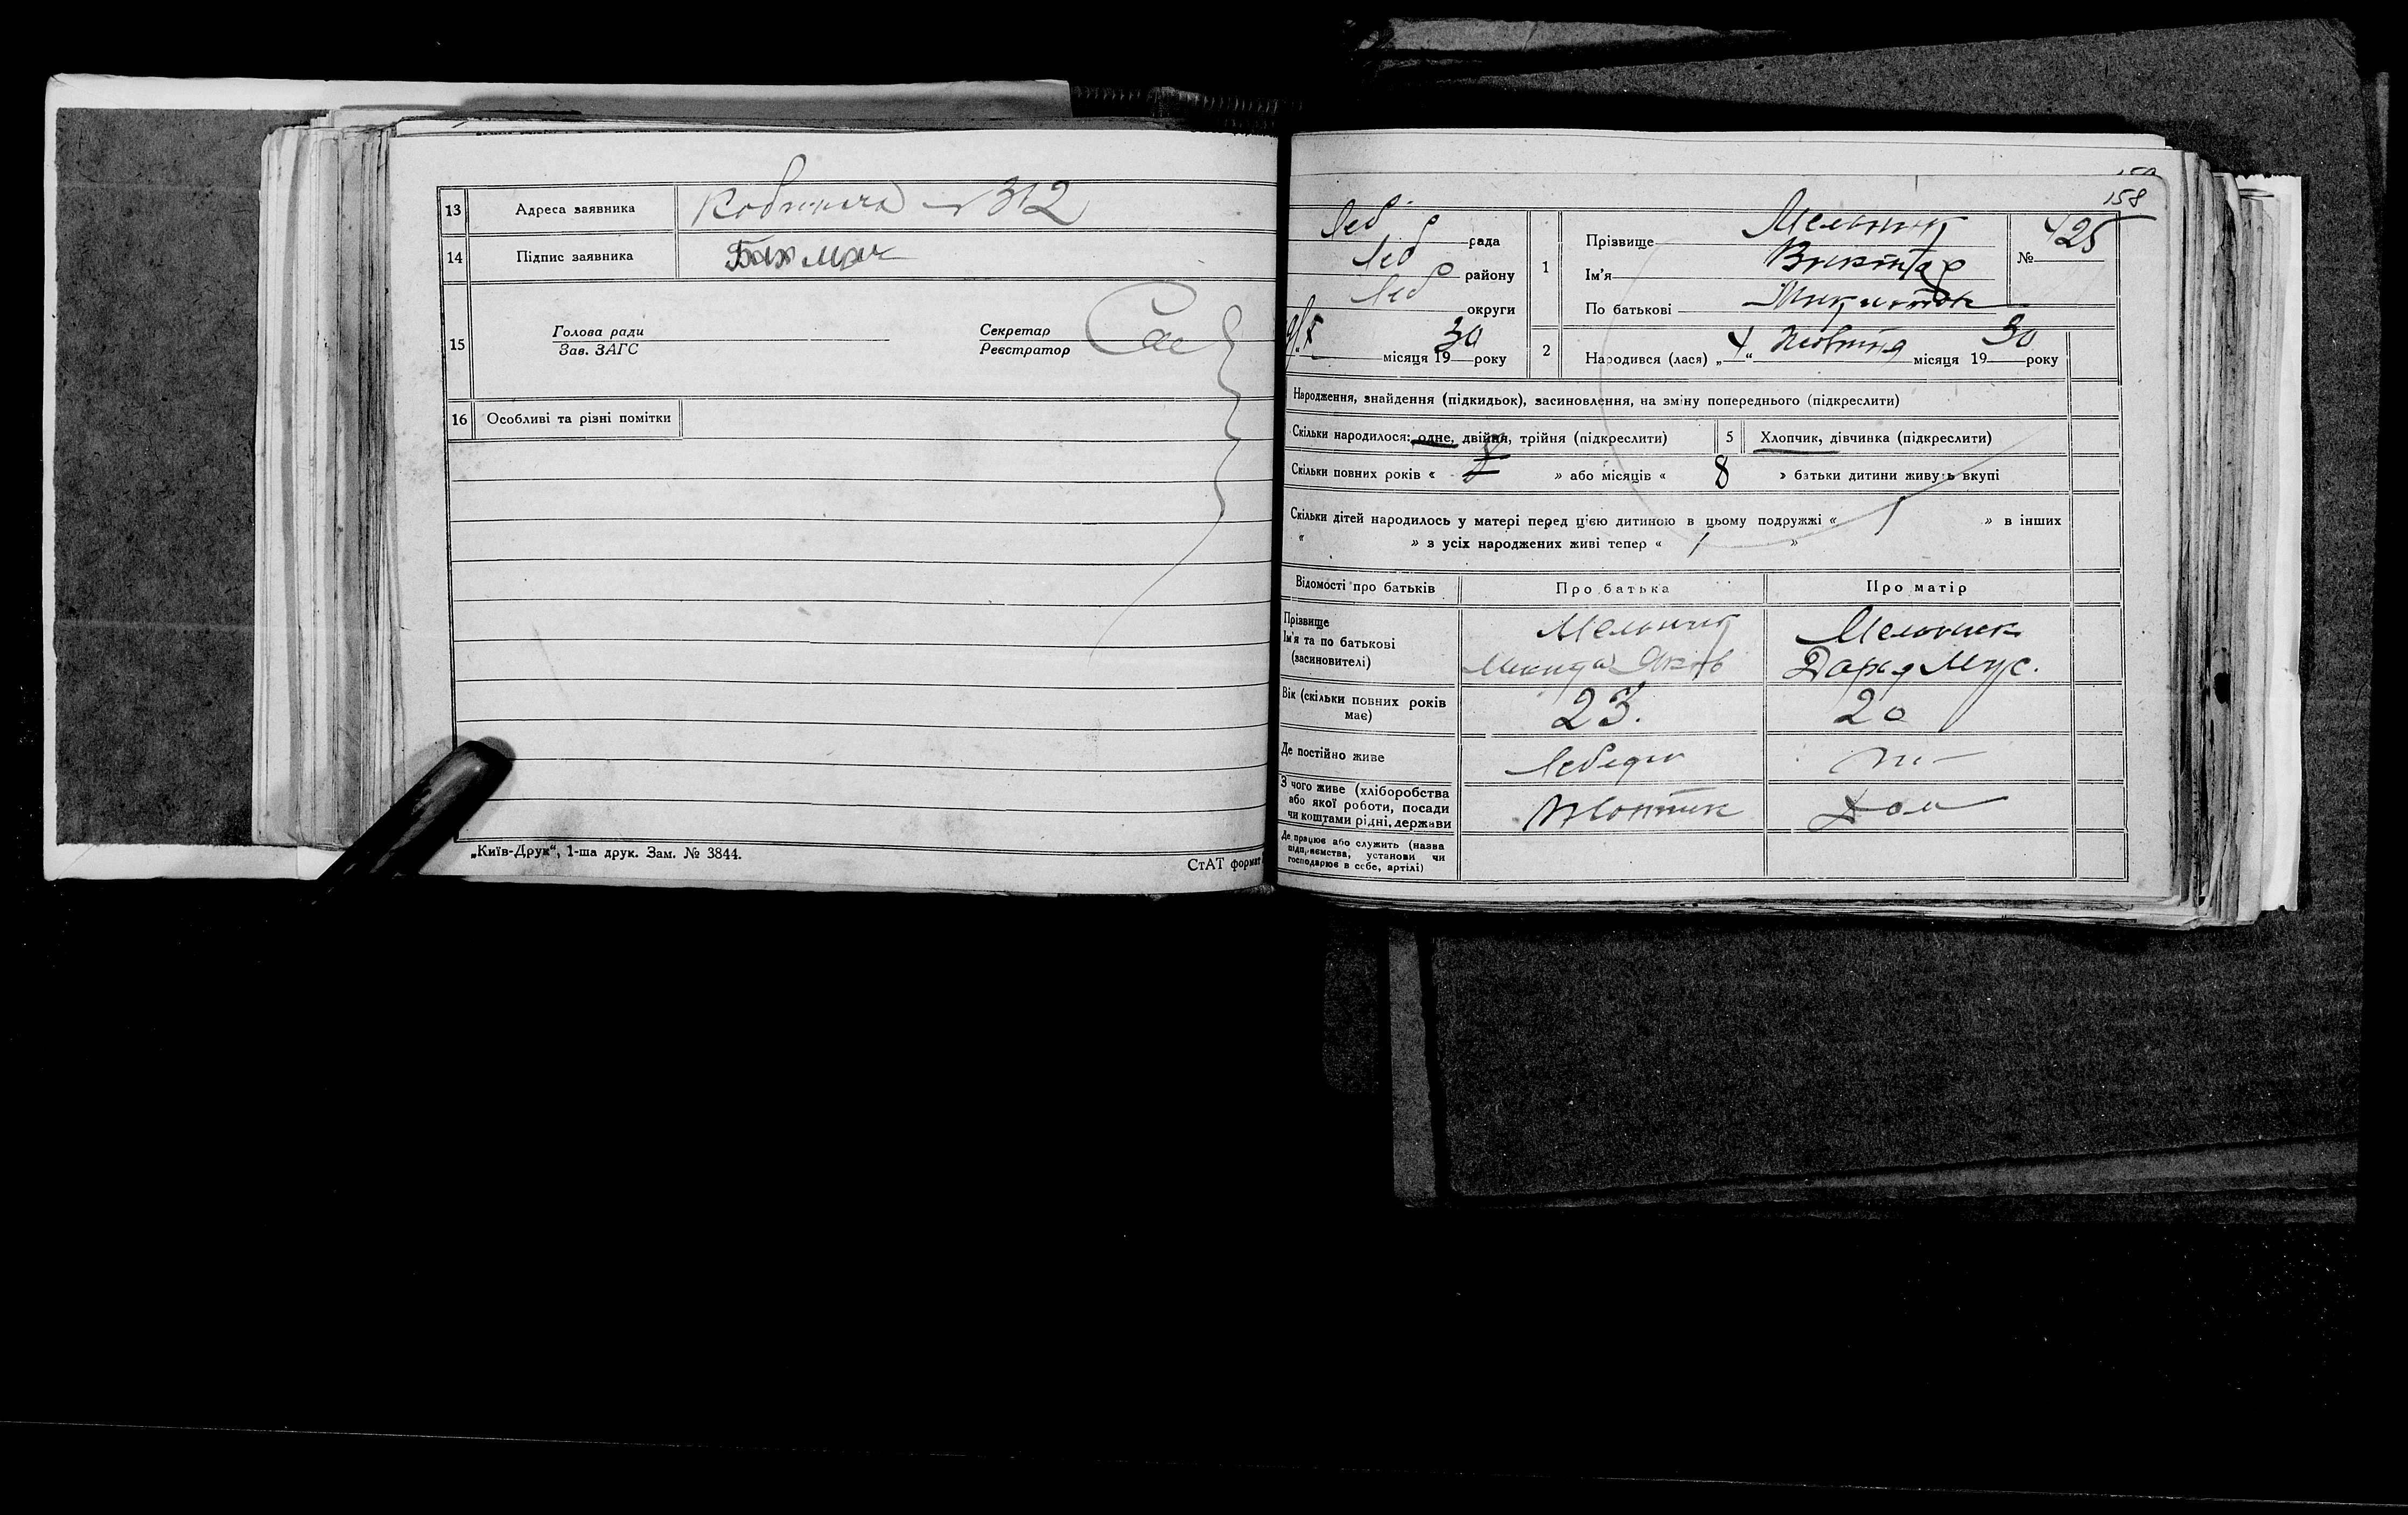 13 Адреса заявника 312
14 Підпис заявника Бахмач
15 Голова ради
Зав. ЗАГС
Секретар
Реєстратор
16 Особливі та різні помітки
„Київ-Друк“, 1-ша друк. Зам. № 3844.
СтАТ формат
158
Леб рада
Леб району
Леб округи
місяця 1930 року
1 Прізвище Мельник
Ім'я Виктор
По батькові Микитов
№ 425
2 Народився (лася) „4“ Жовтня місяця 1930 року
Народження, знайдення (підкидьок), засиновлення, на зміну попереднього (підкреслити)
Скільки народилося: одне, двійня, трійня (підкреслити)
5 Хлопчик, дівчинка (підкреслити)
Скільки повних років « » або місяців « 8 » батьки дитини живуть вкупі
Скільки дітей народилось у матері перед цією дитиною в цьому подружжі « 1 » в інших
« » з усіх народжених живі тепер « 1 »
Відомості про батьків Про батька Про матір
Прізвище
Ім'я та по батькові
(засиновителі)
Мельник
Микита Яков
Мельник
Дария Мус.
Вік (скільки повних років
має)
23. 20
Де постійно живе Лебедин
З чого живе (хліборобства
або якої роботи, посади
чи коштами рідні, держави
Дом
Де працює або служить (назва
підприємства, установи чи
господарює в себе, артілі)